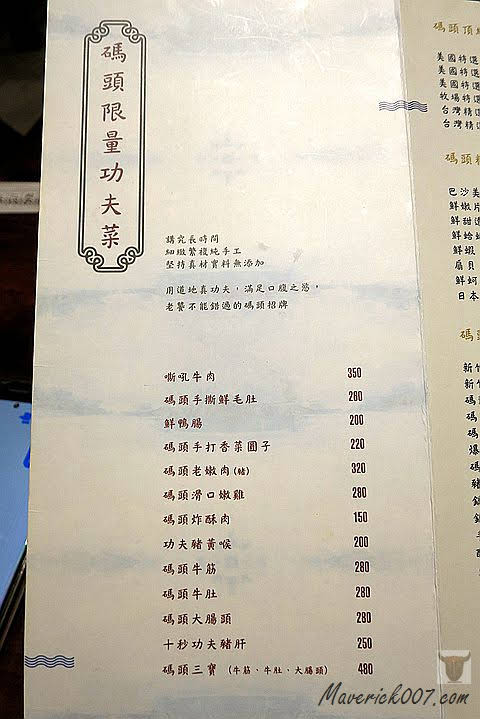 碼頭限量功夫菜
講究長時間
細緻繁複純手工
堅持真材實料無添加
用道地真功夫，滿足口腹之慾，
老饕不能錯過的碼頭招牌
嘶吼牛肉 350
碼頭手撕鮮毛肚 280
鮮鴨腸 200
碼頭手打香菜圓子 220
碼頭老嫩肉(豬) 320
碼頭滑口嫩雞 280
碼頭炸酥肉 150
功夫豬黃喉 200
碼頭牛筋 280
碼頭牛肚 280
碼頭大腸頭 280
十秒功夫豬肝 250
碼頭三寶 (牛筋、牛肚、大腸頭) 480
碼頭頂
美國特選
美國特選
美國特選
牧場特選
台灣精
台灣精
碼頭
巴沙
鮮嫩片
鮮甜
鮮蛤
鮮蝦
扇貝
鮮蚵
日本
碼
新竹
新竹
Maverick007.com